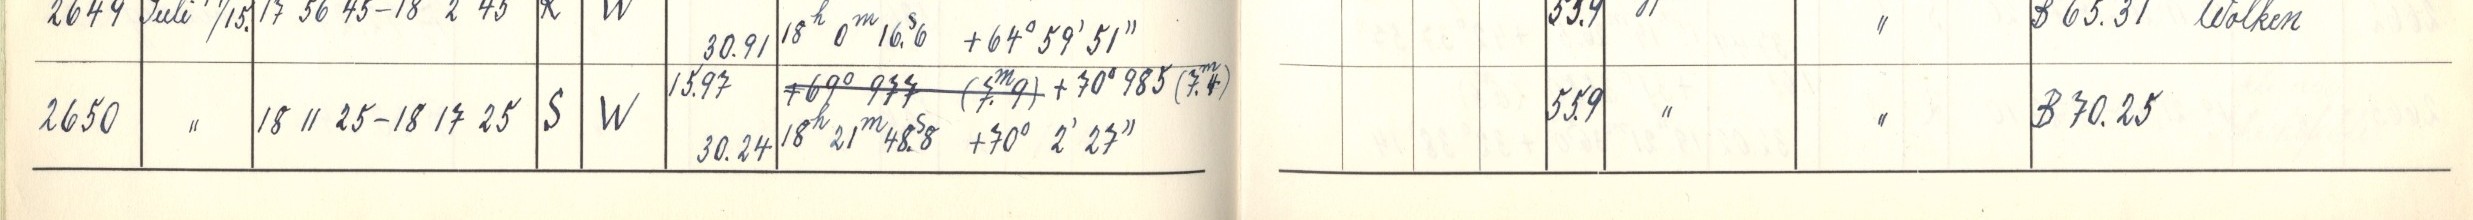 2649 Juli 15. 17 56 45 – 18 2 45 R W 55.9 " " B 65.31 Wolken
30.91 18ʰ 0ᵐ 16.ˢ6 +64° 59' 51"
15.97 +69° 977 (7.ᵐ9) +70° 985 (7.ᵐ4)
2650 " 18 11 25 – 18 17 25 S W 55.9 " " B 70.25
30.24 18ʰ 21ᵐ 48.ˢ8 +70° 2' 27"